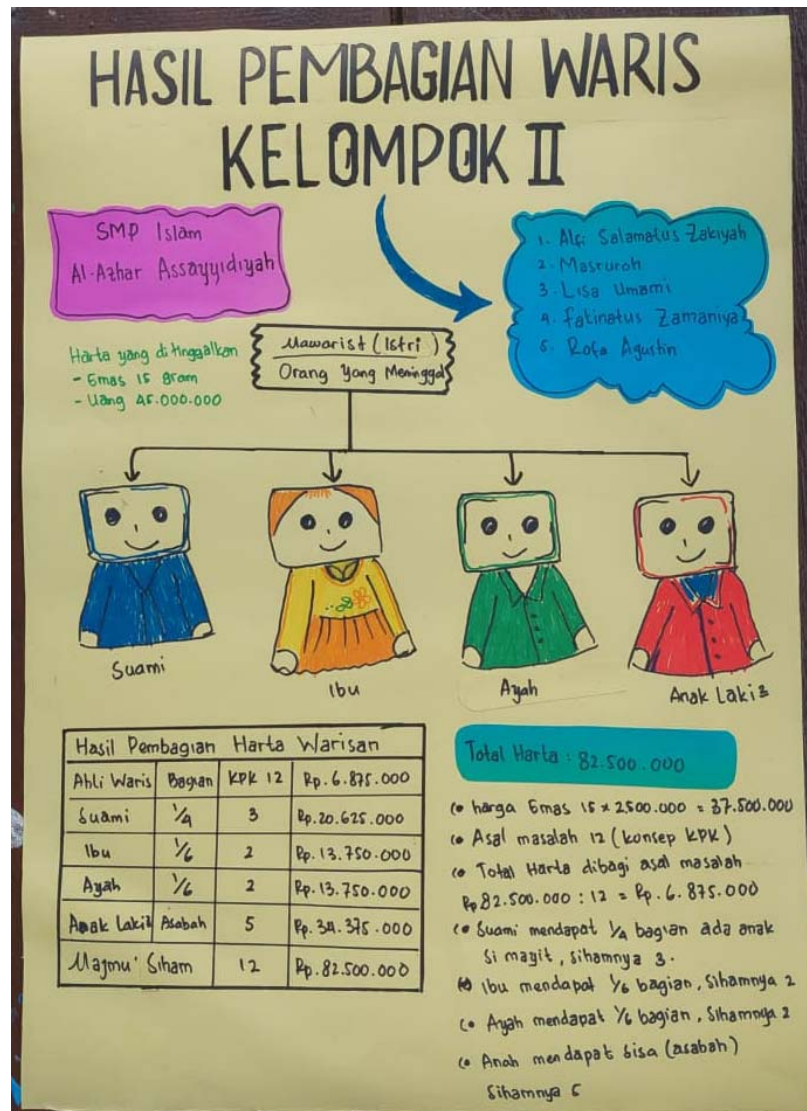 HASIL PEMBAGIAN WARIS
KELOMPOK II
SMP Islam
Al-Azhar Assayyidiyah
1. Alfi Salamatus Zakiyah
2. Masruroh
3. Lisa Umami
4. Fatinatus Zamaniya
5. Rofa Agustin
Harta yang ditinggalkan
- Emas 15 gram
- Uang 45.000.000
Mawarist (Istri)
Orang Yang Meninggal
Suami
Ibu
Ayah
Anak Laki2
Hasil Pembagian Harta Warisan
Ahli Waris Bagian KPK 12 Rp. 6.875.000
Suami 1/4 3 Rp. 20.625.000
Ibu 1/6 2 Rp. 13.750.000
Ayah 1/6 2 Rp. 13.750.000
Anak Laki2 Asabah 5 Rp. 34.375.000
Majmu' Siham 12 Rp. 82.500.000
Total Harta : 82.500.000
harga Emas 15 x 2500.000 = 37.500.000
Asal masalah 12 (konsep KPK)
Total Harta dibagi asal masalah
Rp 82.500.000 : 12 = Rp. 6.875.000
Suami mendapat 1/4 bagian ada anak
si mayit, sihamnya 3.
Ibu mendapat 1/6 bagian, Sihamnya 2
Ayah mendapat 1/6 bagian, Sihamnya 2
Anah mendapat sisa (asabah)
Sihamnya 5